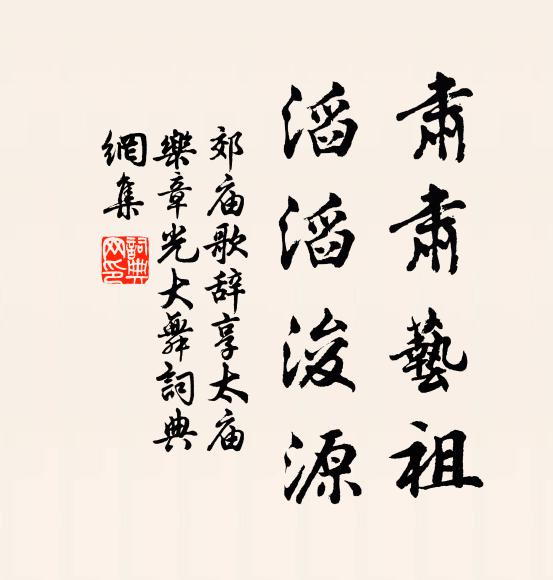 肅肅藝祖
滔滔浚源
郊庙歌辞享太庙
樂章光大舞詞典
網集
詞典網印